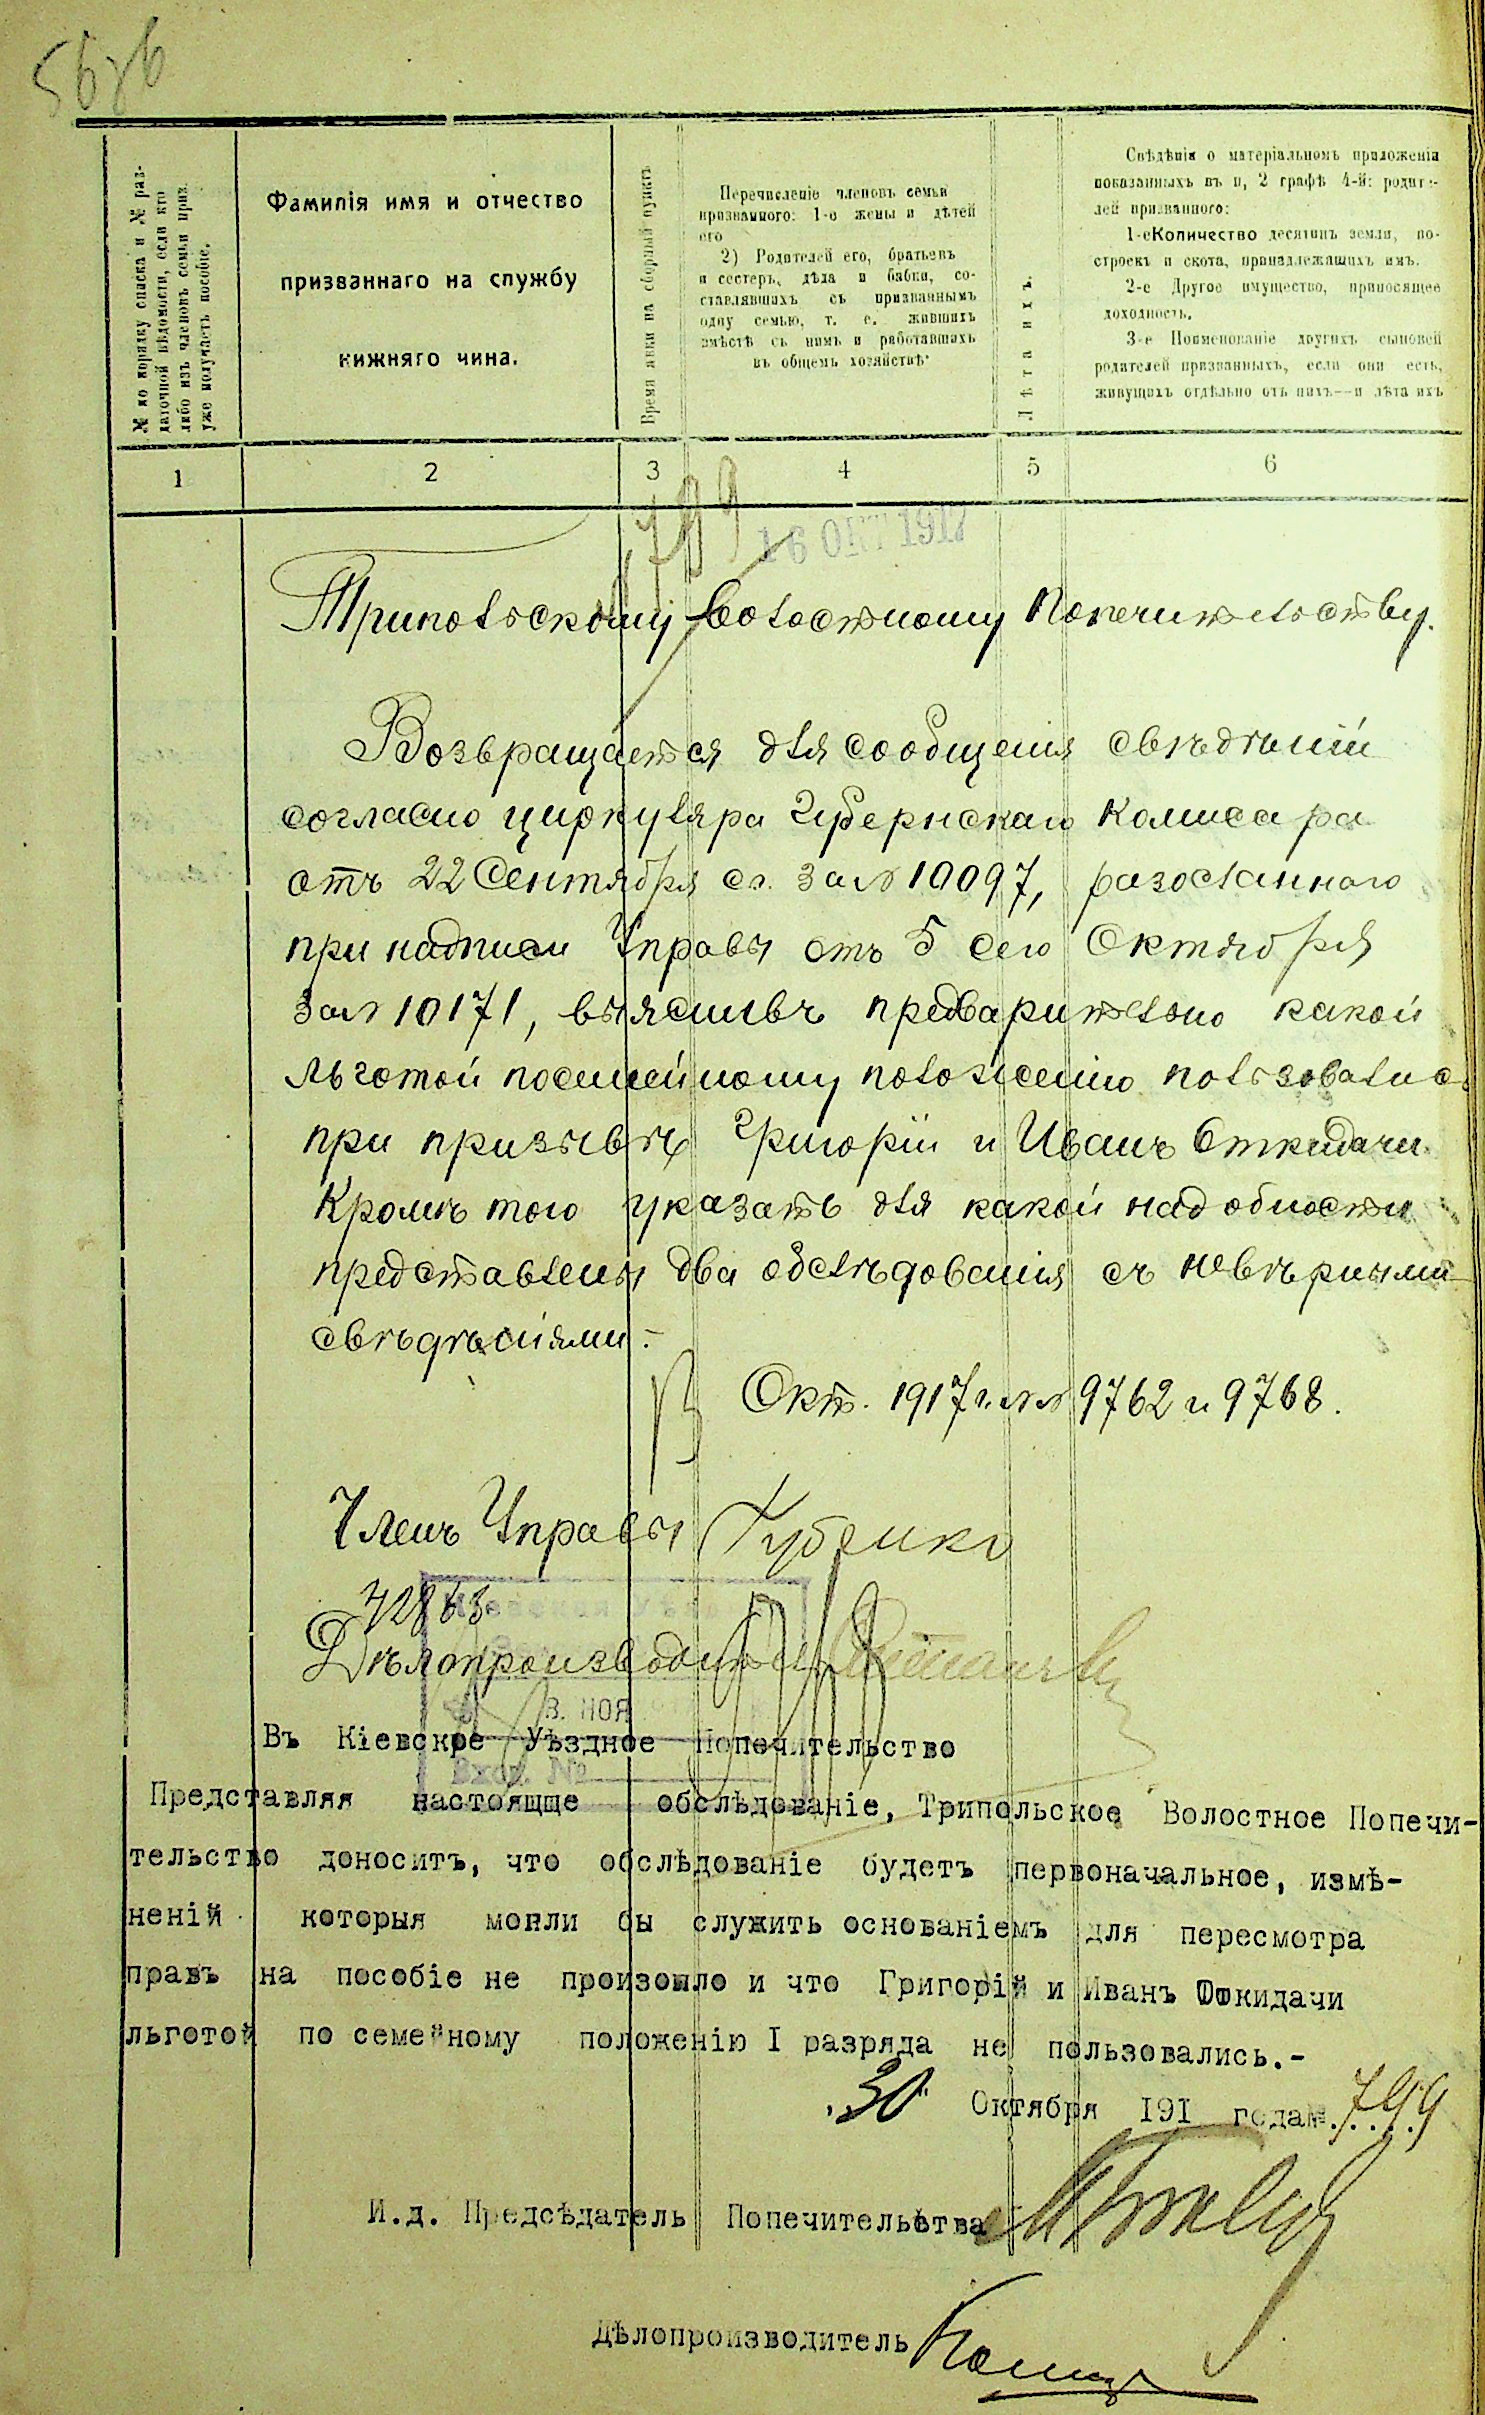 № по порядку списка и № раз-
даточной вѣдомости, если кто
либо изъ членовъ семьи приз.
уже получаетъ пособіе.
Фамилія имя и отчество
призваннаго на службу
нижняго чина.
Время явки на сборный пунктъ
Перечисленіе членовъ семьи
призваннаго: 1-о жены и дѣтей
его
2) Родителей его, братьевъ
и сестеръ, дѣда и бабки, со-
ставлявшихъ съ призваннымъ
одну семью, т. е. жившихъ
вмѣстѣ съ нимъ и работавшихъ
въ общемъ хозяйствѣ
Лѣта ихъ.
Свѣдѣнія о матеріальномъ приложенія
показанныхъ въ п, 2 графѣ 4-й: родите-
лей призваннаго:
1-еКоличество десятинъ земли, по-
строекъ и скота, принадлежащихъ имъ.
2-е Другое имущество, приносящее
доходность.
3-е Поименованіе другихъ сыновей
родителей призванныхъ, если они есть,
живущихъ отдѣльно отъ нихъ--и лѣта ихъ
1 2 3 4 5 6
799
16 ОКТ 1917
Трипольскому Волостному Попечительству.
Возвращается для сообщенія свѣдѣній
согласно циркуляра Губернскаго Комисара
отъ 22 Сентября сг. за № 10097, разосланнаго
при надписи Управы отъ 5 сего Октября
за № 10171, выяснивъ предварительно какой
льготой посемейному положенію пользовались
при призывѣ Григорій и Иванъ Откидачи.
Кромѣ того указать для какой надобности
представлены два обслѣдованія съ невѣрными
свѣдѣніями.-
Окт. 1917 г. № № 9762 и 9768.
Членъ Управы
Дѣлопроизводитель
3. НОЯ
Вход. №
Въ Кіевское Уѣздное Попечительство
Представляя настоящще обслѣдованіе, Трипольское Волостное Попечи-
тельство доноситъ, что обслѣдованіе будетъ первоначальное, измѣ-
неній которыя могли бы служить основаніемъ для пересмотра
правъ на пособіе не произошло и что Григорій и Иванъ Откидачи
льготой по семейному положенію I разряда не пользовались.-
"30" Октября 191 года № 799
И.д. Предсѣдатель Попечительства
Дѣлопроизводитель